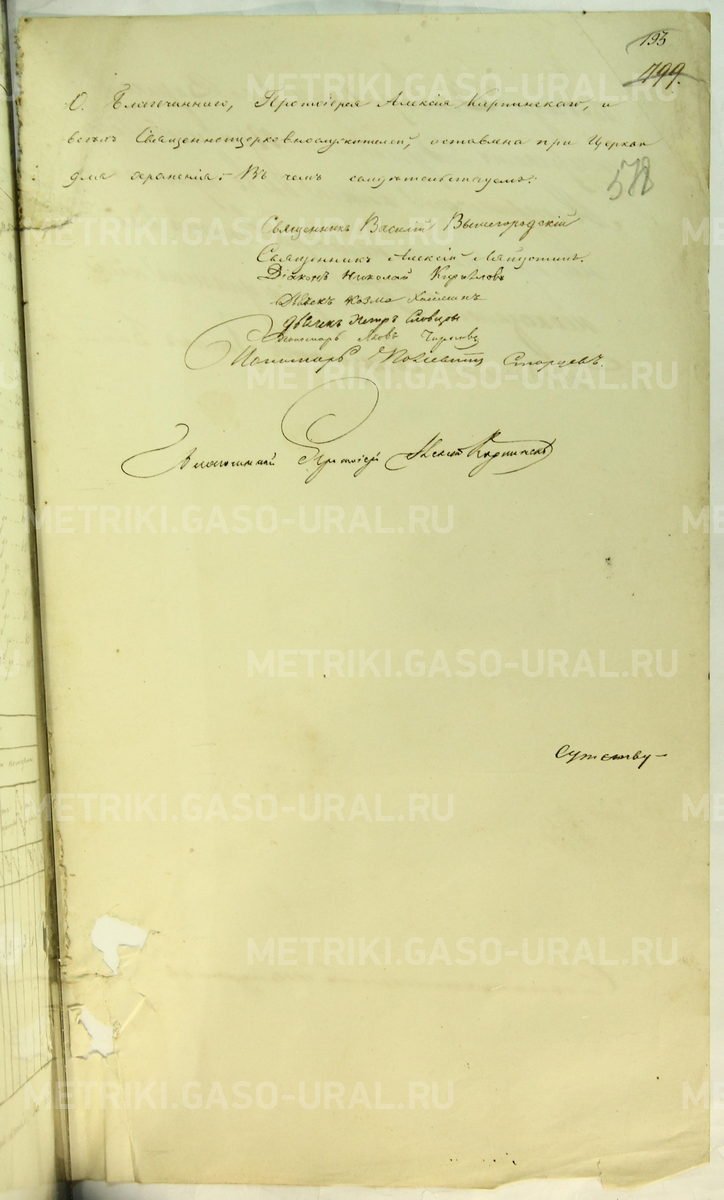 193
799.
578
О. Благочиннаго, Протоіерея Алексія Карпинскаго, и
всѣхъ Священноцерковнослужителей, оставлена при Церкви
для храненія. Въ чемъ свидѣтельствуемъ:
Священникъ Василій Вышегородскій
Священникъ Алексій
Діаконъ Николай Кириловъ
Дьячекъ Козма
Дьячекъ Петръ Словцовъ
Пономарь Яковъ
Пономарь Старцевъ.
Благочинный Протоіерей Алексій Карпинскій
METRIKI.GASO-URAL.RU